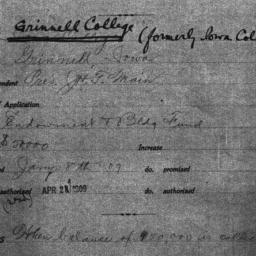 Grinnell College (formerly Iowa Col
Grinnell, Iowa
ndent Pres. J. H. T. Main
Application
Endowment & Bldg Fund
$ 50000 Increase
Jany 8th 09 do. promised
uthorized APR 21 1909 do. authorized
s When balance of $400,000 is colle